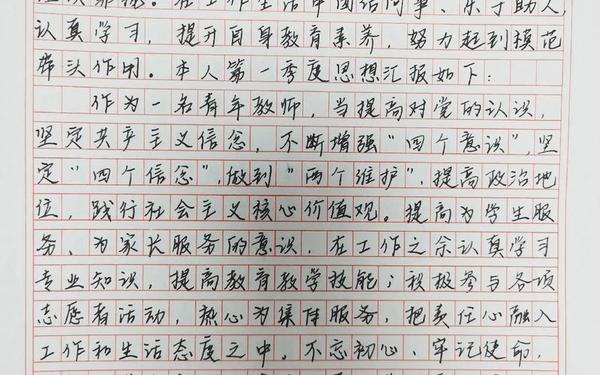 在工作生活中团结同事、乐于助人,
认真学习,提升自身教育素养,努力起到模范
带头作用。本人第一季度思想汇报如下:
作为一名青年教师,当提高对党的认识,
坚定共产主义信念,不断增强"四个意识",坚
定"四个信念",做到"两个维护",提高政治地
位,践行社会主义核心价值观。提高为学生服
务、为家长服务的意识,在工作之余认真学习
专业知识,提高教育教学技能;积极参与各项
志愿者活动,热心为集体服务,把责任心融入
工作和生活态度之中。不忘初心、牢记使命,